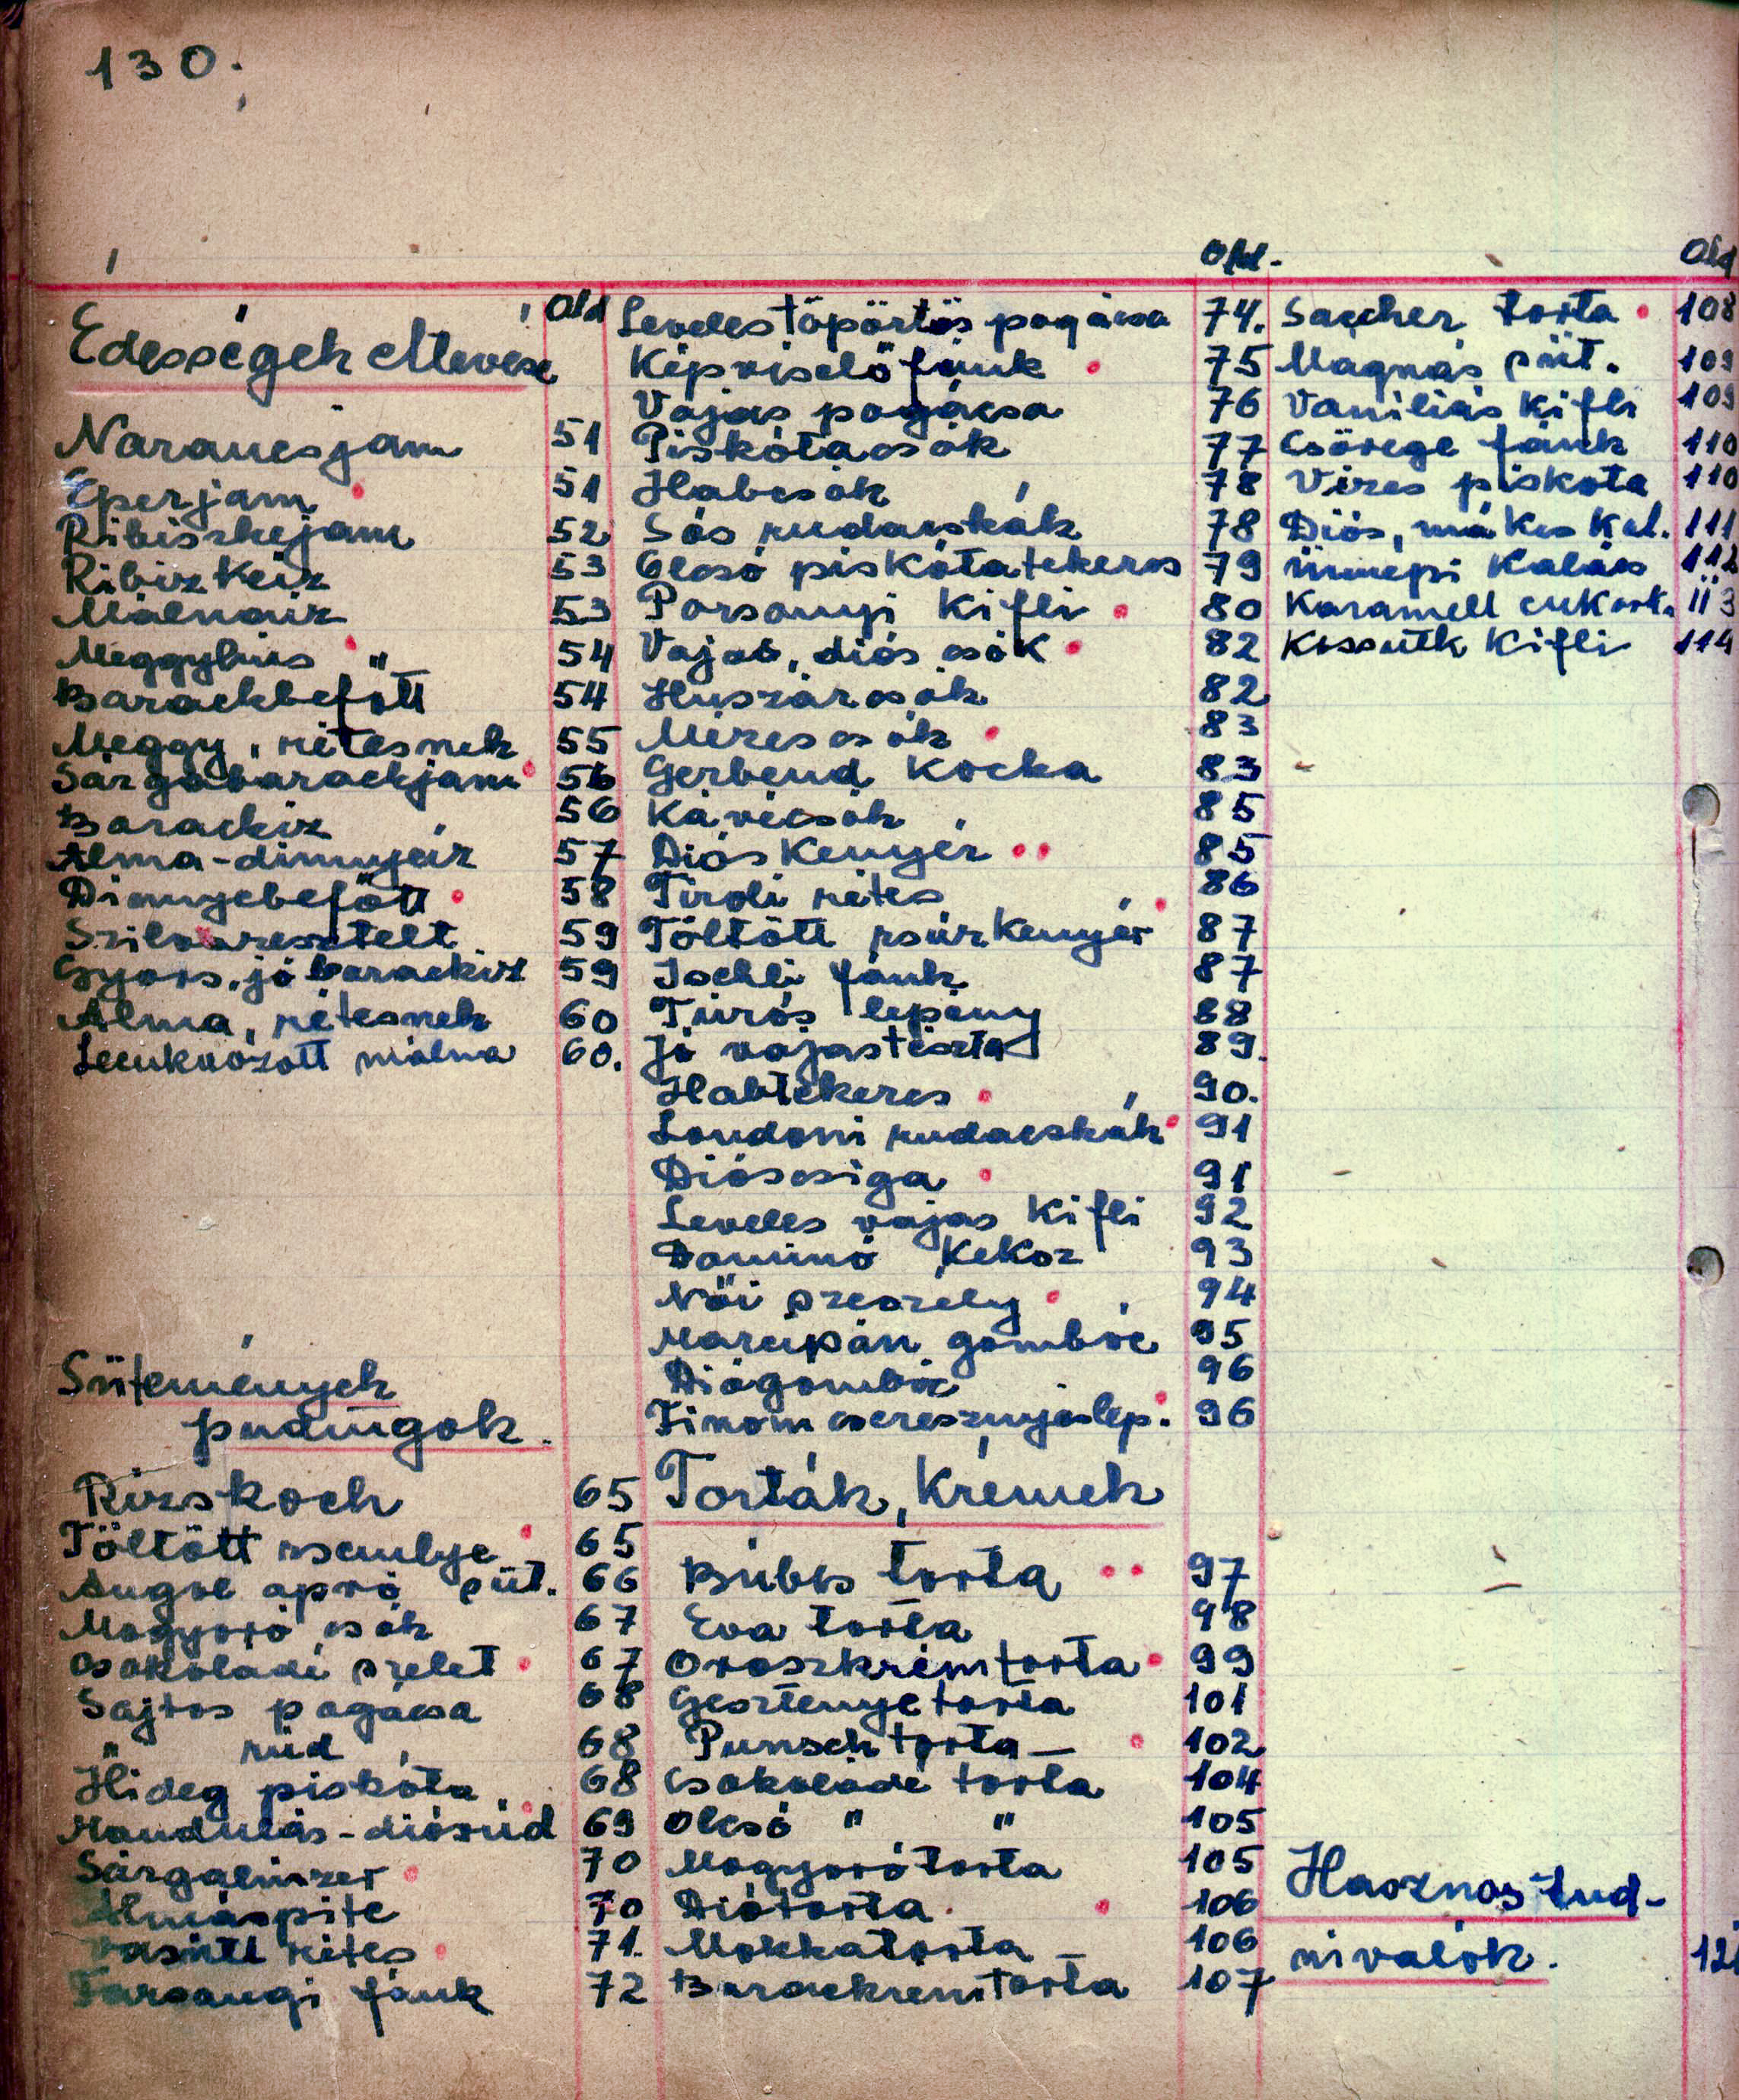 130.
Old
Édességek Nevese
Narancsjam 51
Eperjam 51
Ribiszkejam 52
Ribizkeíz 53
Málnaíz 53
Meggyhús " 54
Barackbefőtt 54
Meggy, rétesnek 55
Sárgabarackjam 56
Barackíz 56
Alma-dinnyeíz 57
Dinnyebefőtt 58
Szilvaresztelt 59
Gyors, jó barackíz 59
Alma, rétesnek 60
Lecukrozott málna 60.
Sütemények
pudingok.
Rizskoch 65
Töltött zsemlye 65
Angol apró süt. 66
Mogyoró csók 67
Csokoládé szelet 67
Sajtos pogácsa 68
" rúd 68
Hideg piskóta 68
Mandulás-diósrúd 69
Sárgalinzer 70
Almáspite 70
Vasútt rétes 71.
Farsangi fánk 72
Old.
Leveles töpörtös pogácsa 74.
Képviselőfánk 75
Vajas pogácsa 76
Piskótacsók 77
Habcsók 78
Sós rudacskák 78
Olcsó piskótatekercs 79
Porsonyi Kifli 80
Vajas, diós csók 82
Huszárcsók 82
Mézescsók 83
Gerbeud Kocka 83
Kávécsók 85
Diós Kenyér 85
Tiroli rétes 86
Töltött zsúrkenyér 87
Ischli fánk 87
Túrós lepény 88
Jó vajastészta 89.
Habtekercs 90.
Londoni rudacskák 91
Dióscsiga 91
Leveles vajas Kifli 92
Dominó Keksz 93
Női szeszély 94
Marcipán gombóc 95
Diógombóc 96
Finom cseresznyéslep. 96
Torták, Krémek
Búbos torta 97
Éva torta 98
Oroszkrémtorta 99
Gesztenyetorta 101
Punsch torta – 102
Csokoládé torta 104
Olcsó " " 105
Mogyorótorta 105
Diótorta 106
Mokkatorta – 106
Barackrémtorta 107
Old
Saccher torta 108
Magnás süt. 109
Vaníliás Kifli 109
Csörege fánk 110
Vizes piskota 110
Diós, mákos Kal. 111
ünnepi Kalács 112
Karamell cukork. 113
Kossuth Kifli 114
Hasznos tud-
nivalók. 121